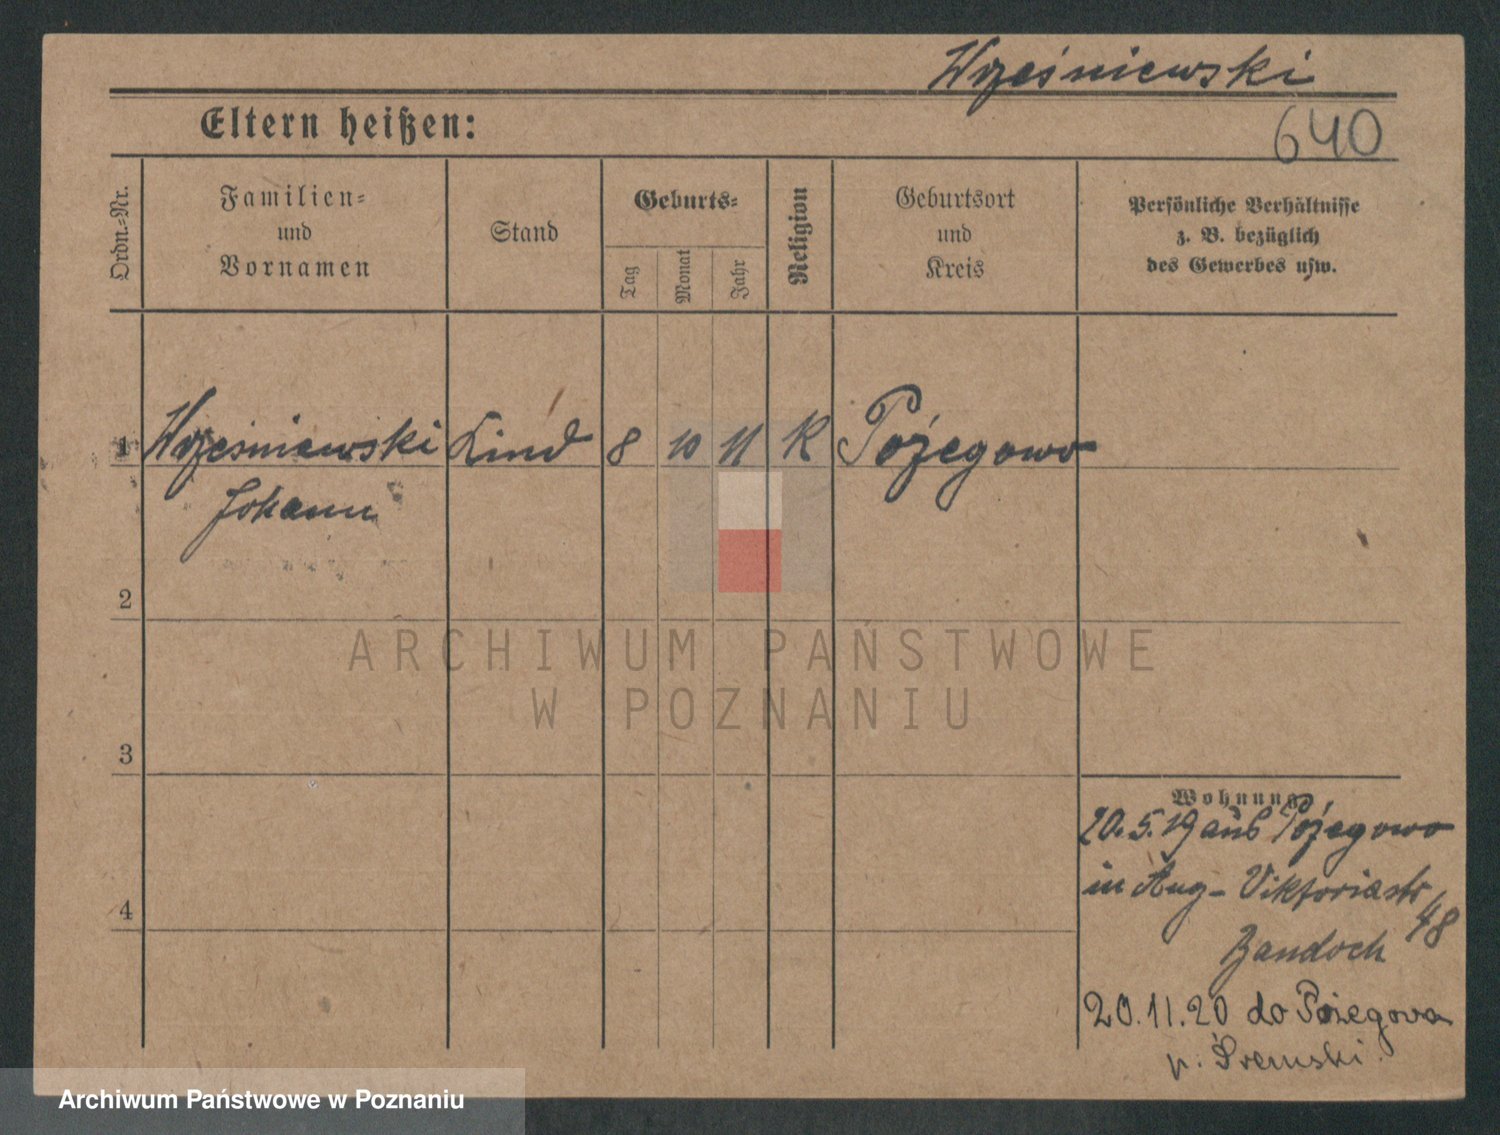 Wrześniewski
640
Eltern heißen:
Ordn.-Nr.
Familien-
und
Vornamen
Stand
Geburts-
Tag
Monat
Jahr
Religion
Geburtsort
und
Kreis
Persönliche Verhältnisse
z. B. bezüglich
des Gewerbes usw.
1 Wrześniewski Kind 8 10 11 K Pożegowo
Johann
2
3
4
Wohnung
20. 5. 19 aus Pożegowo
in Aug-Viktoriastr
48
Bandoch
20.11.20 do Pożegowa
p. Śremski.
ARCHIWUM PAŃSTWOWE
W POZNANIU
Archiwum Państwowe w Poznaniu